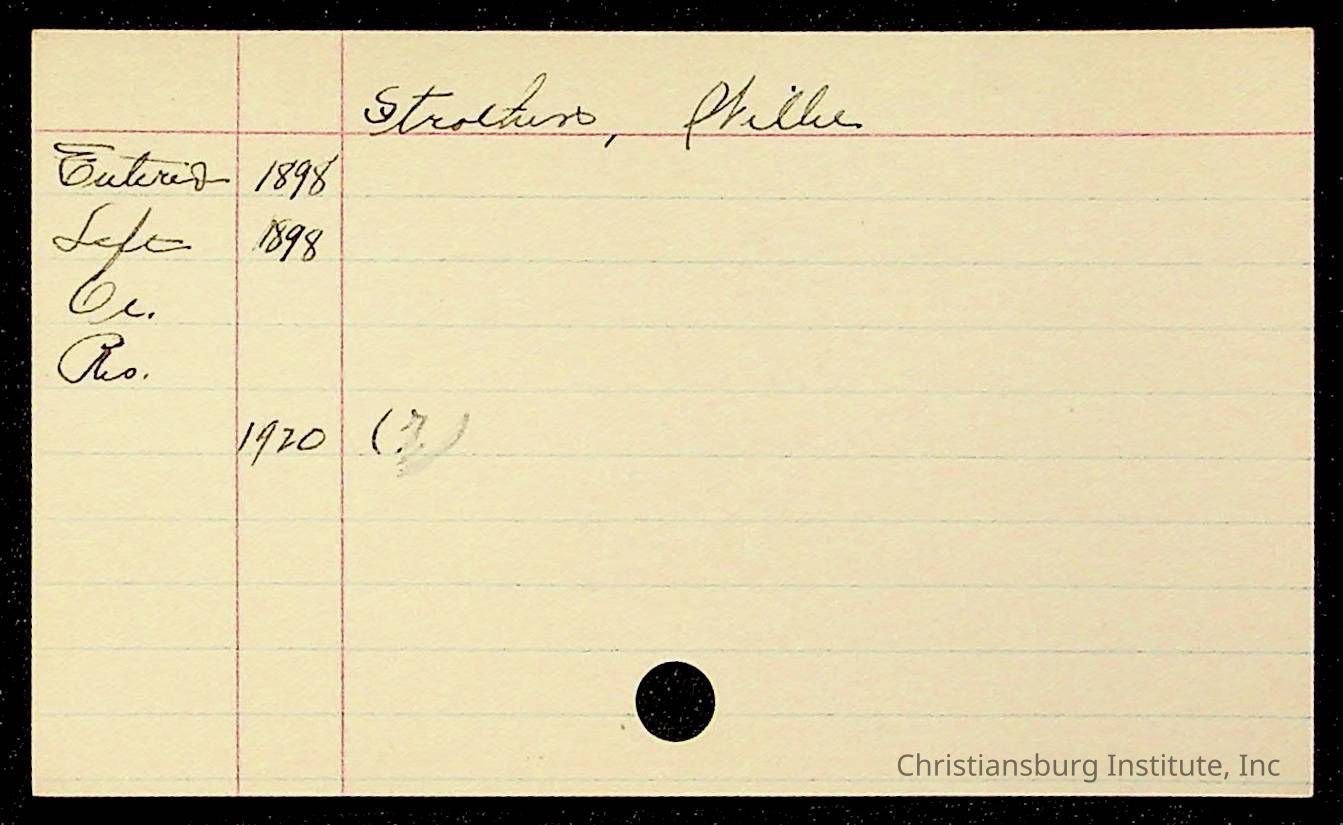 Strothers, Willie
Entered 1898
Left 1898
Oc.
Res.
1920 (?)
Christiansburg Institute, Inc